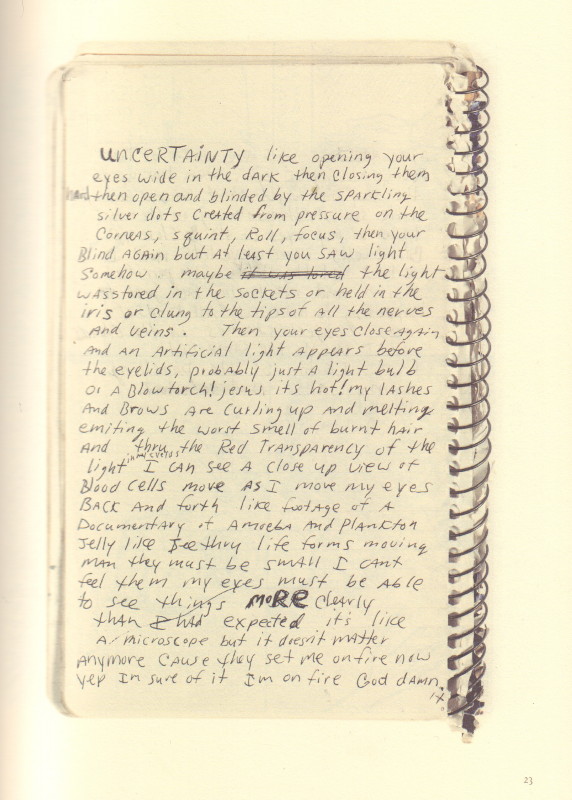 UNCERTAINTY like opening your
eyes wide in the dark then closing them
then open and blinded by the sparkling
silver dots created from pressure on the
corneas, squint, Roll, focus, then your
Blind Again but at least you saw light
somehow. maybe it was stored the light
was stored in the sockets or held in the
iris or clung to the tips of all the nerves
and veins. Then your eyes close again
and an artificial light appears before
the eyelids, probably just a light bulb
or a Blow torch! jesus its hot! my lashes
And Brows are curling up and melting
emiting the worst smell of burnt hair
And thru the Red Transparency of the
light in my eyelids I can see a close up view of
Blood Cells move as I move my eyes
Back and forth like footage of a
Documentary of Amoeba and Plankton
jelly like see thru life forms moving
man they must be small I cant
feel them my eyes must be able
to see things MORE clearly
than I had expected it's like
a microscope but it doesn't matter
anymore cause they set me on fire now
yep Im sure of it Im on fire God damn
it
23